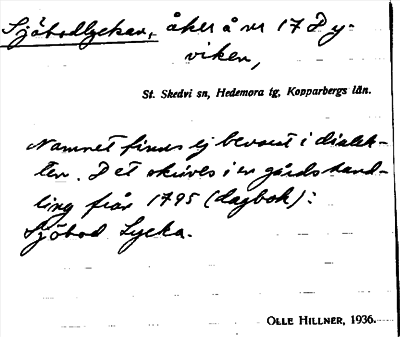 Sjöbodlyckan, åker å nr 17 Dy-
viken,
St. Skedvi sn, Hedemora tg, Kopparbergs län.
Namnet finns ej bevarat i dialek-
ten. Det skrives i en gårdshand-
ling från 1795 (dagbok):
Sjöbod Lycka.
OLLE HILLNER, 1936.